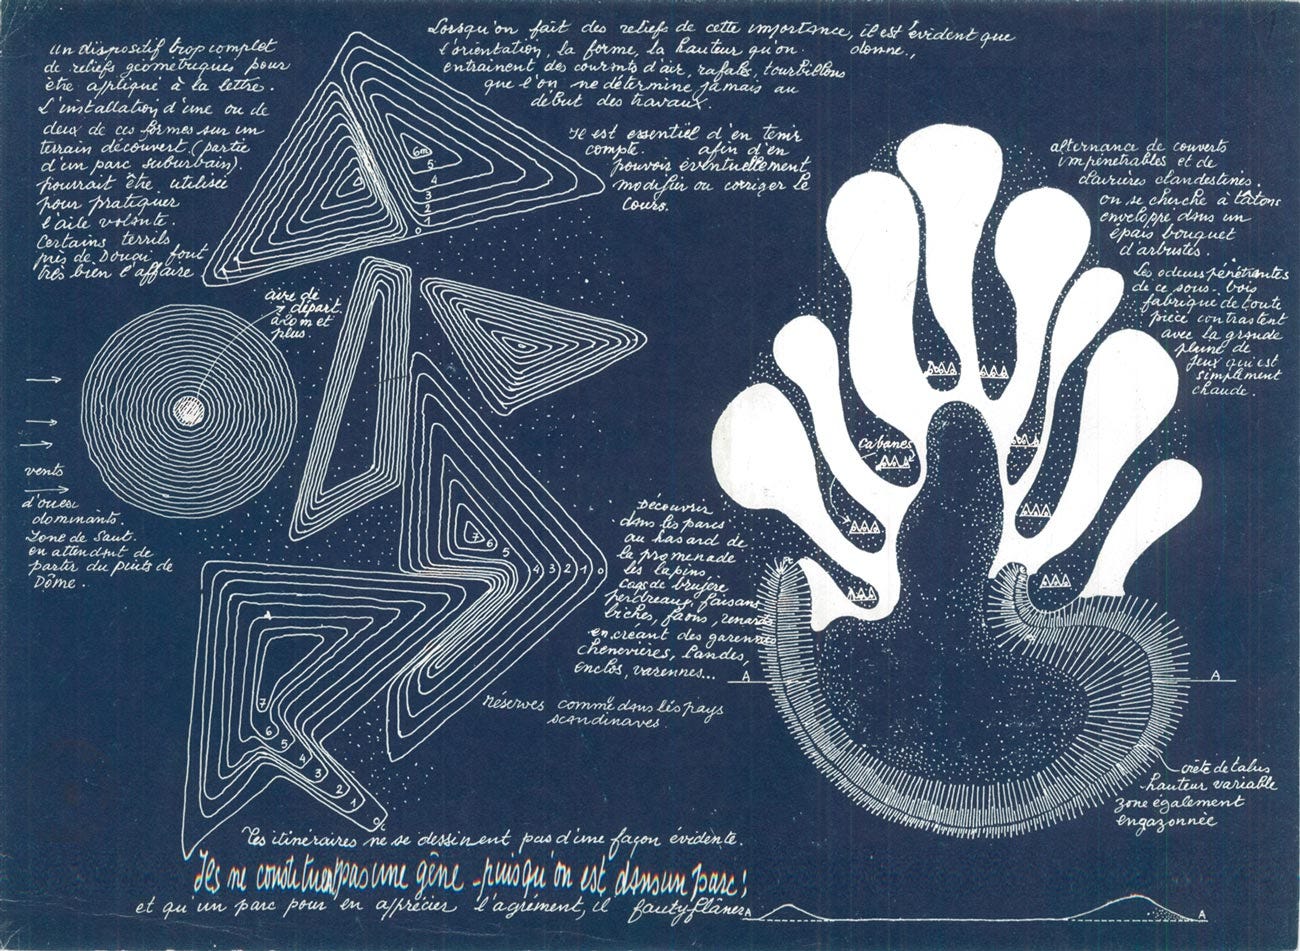 un dispositif trop complet
de reliefs géométriques pour
être appliqué à la lettre.
L'installation d'une ou de
deux de ces formes sur un
terrain découvert (partie
d'un parc suburbain).
pourrait être utilisée
pour pratiquer
l'aile volante.
Certains terrils
près de Douai font
très bien l'affaire
Lorsqu'on fait des reliefs de cette importance, il est évident que
l'orientation, la forme, la hauteur qu'on donne,,
entrainent des courants d'air, rafales, tourbillons
que l'on ne détermine jamais au
début des travaux.
Il est essentiel d'en tenir
compte afin d'en
pouvoir éventuellement
modifier ou corriger le
cours.
6m
5
4
3
2
1
0
aire de
départ.
à 20 m et
plus
vents
d'ouest
dominants.
Zone de saut.
en attendant de
partir du puits de
Dôme.
7
6
5
4
3
2
1
0
7
6
5
4
3
2
1
0
alternance de couverts
impénétrables et de
clairières clandestines.
on se cherche à tâtons
enveloppé dans un
épais bouquet
d'arbustes.
Les odeurs pénétrantes
de ce sous-bois
fabriqué de toute
pièce contrastent
avec la grande
plaine de
jeux qui est
simplement
chaude.
Cabanes
Découvrir
dans les parcs
au hasard de
la promenade
les lapins
coqs de bruyère
perdreaux, faisans,
biches, faons, renards
en créant des garennes
chenevières, landes,
enclos, varennes...
Réserves comme dans les pays
scandinaves.
A
A
crête de talus
hauteur variable
zone également
engazonnée
Les itinéraires ne se dessinent pas d'une façon évidente.
Ils ne constituent pas une gêne - puisqu'on est dans un parc!
et qu'un parc pour en apprécier l'agrément, il faut y flâner
A
A